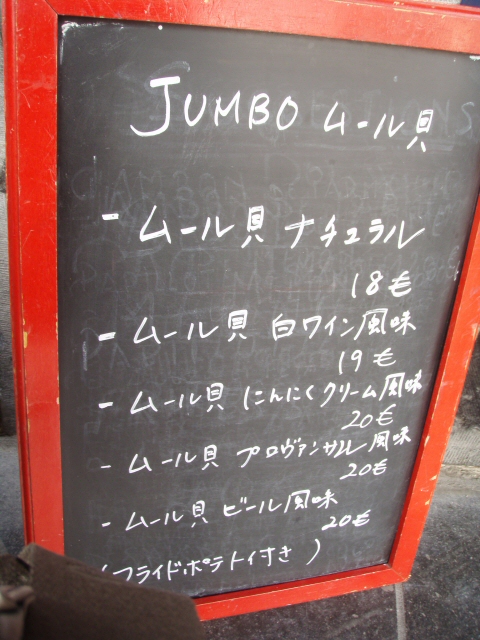 JUMBO ムール貝
- ムール貝 ナチュラル
18€
- ムール貝 白ワイン風味
19€
- ムール貝 にんにくクリーム風味
20€
- ムール貝 プロヴァンサル風味
20€
- ムール貝 ビール風味
20€
(フライドポテト付き)